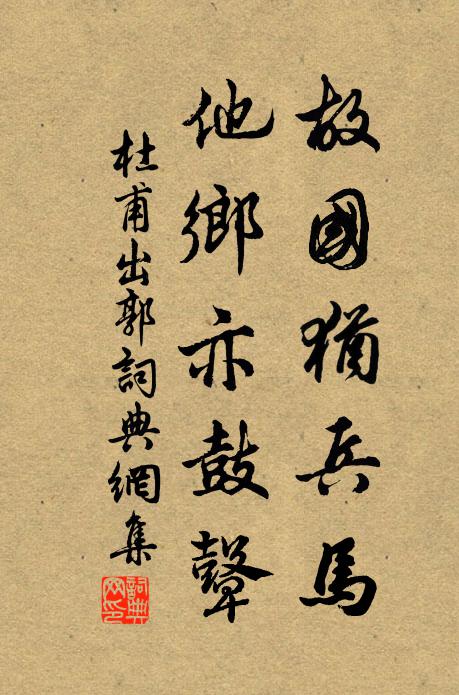 故國猶兵馬
他鄉亦鼓鼙
杜甫出郭詞典網集
詞典网印